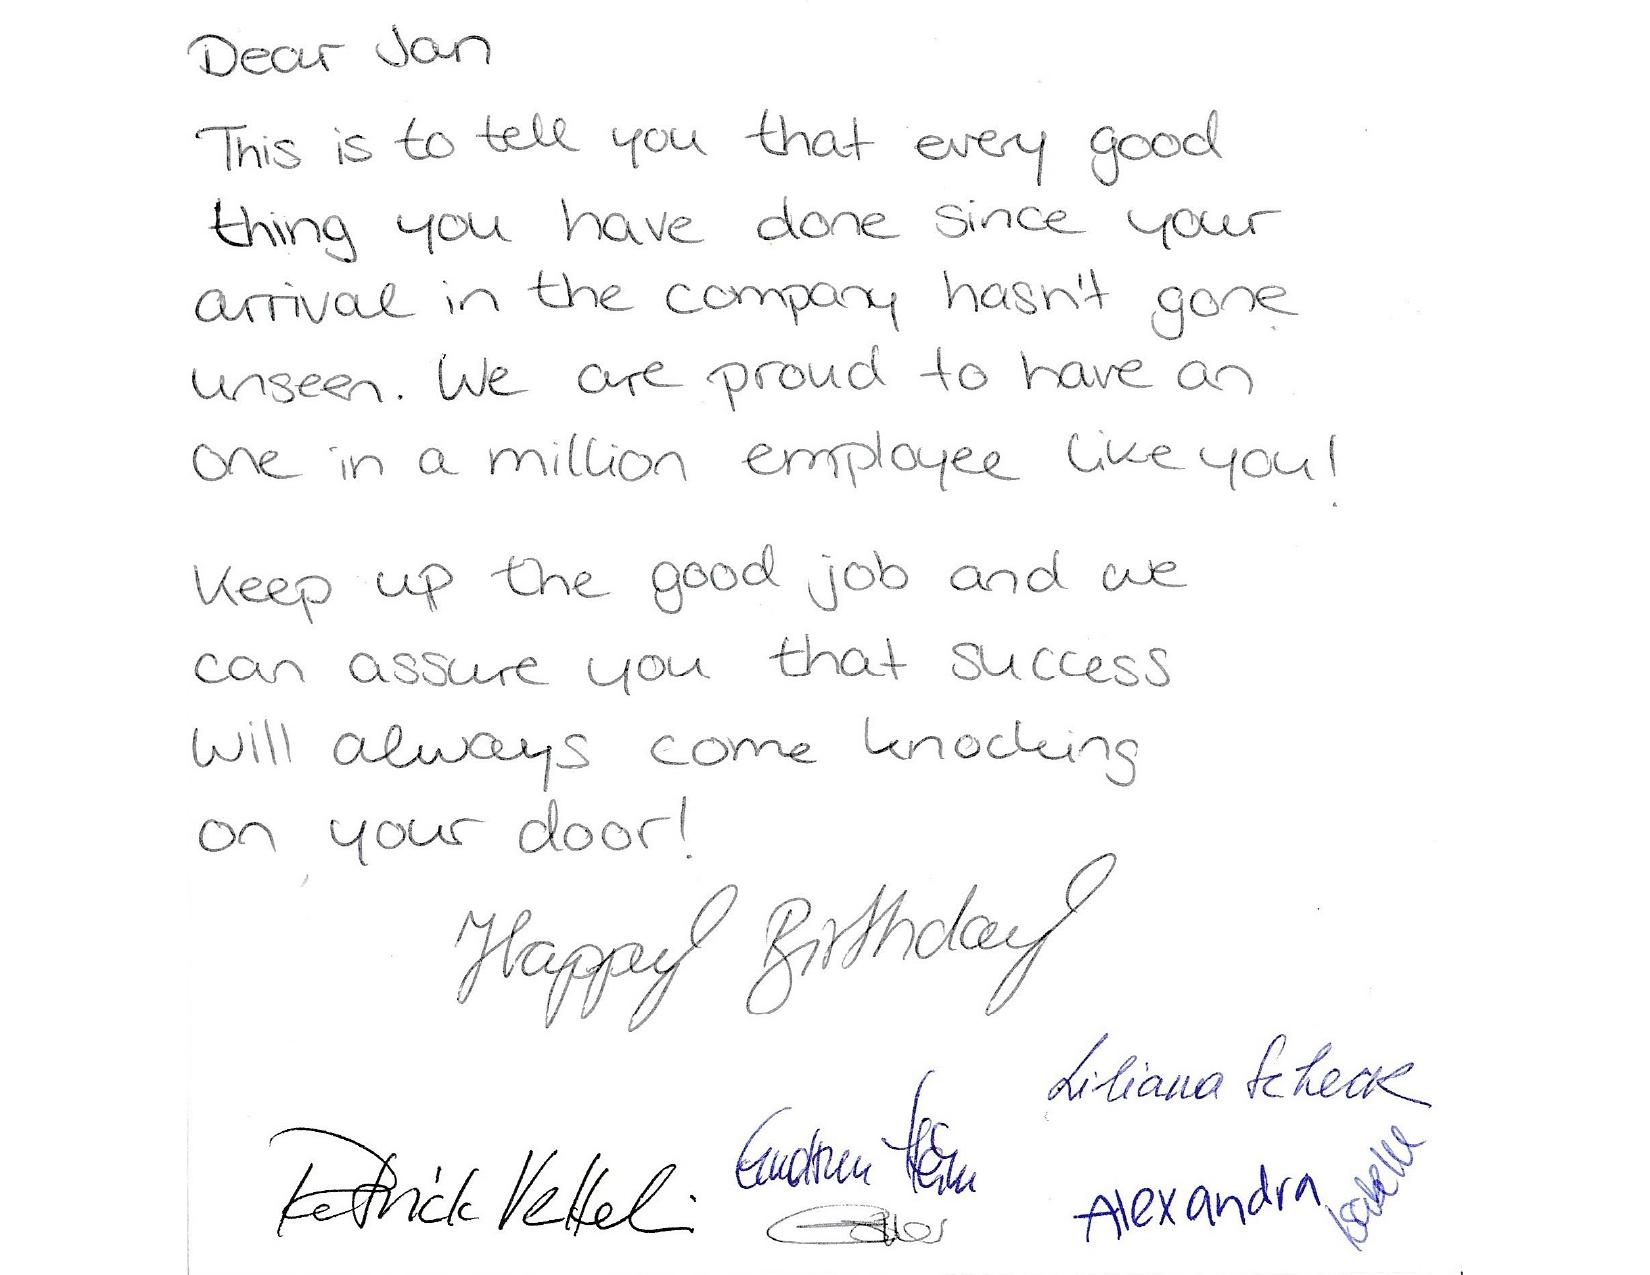 Dear Jan
This is to tell you that every good
thing you have done since your
arrival in the company hasn't gone
unseen. We are proud to have an
one in a million employee like you!
Keep up the good job and we
can assure you that success
will always come knocking
on your door!
Happy Birthday
Liliana Scheck
Patrick
Alexandra
Isabelle